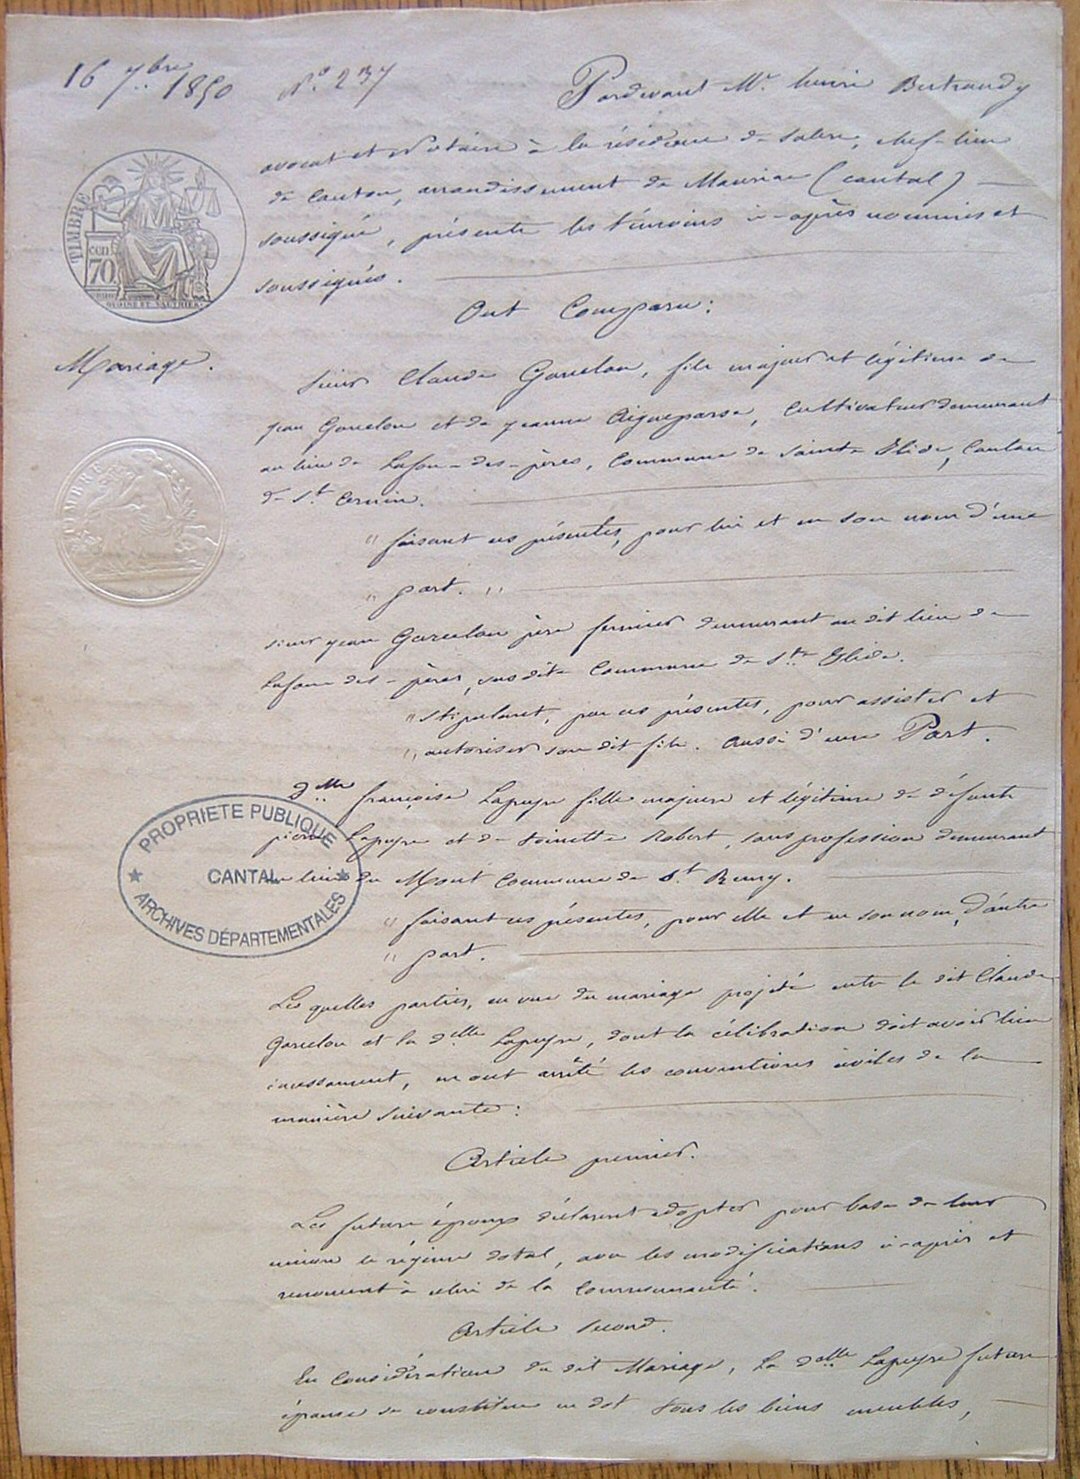 16 7bre 1850
N° 237
Pardevant Me henri Bertrandy
avocat et Notaire à la résidence de Salers, chef-lieu
de Canton, arrondissement de Mauriac (cantal)
soussigné, présents les témoins ci-après nommés et
soussignés.
Ont Comparu :
TIMBRE
cen
70
Mariage.
Sieur Claude Garcelon, fils majeur et légitime de
jean Garcelon et de jeanne Aigueparse, Cultivateur demeurant
au lieu de Lafon-des-pères, Commune de Sainte Elide, Canton
de St. Cernin.
TIMBRE
" faisant ces présentes, pour lui et en son nom d'une
" part. "
sieur jean Garcelon père fermier demeurant au dit lieu de
Lafon des-pères, susdite Commune de Ste Elide.
" Stipulant, par ces présentes, pour assister et
" autoriser son dit fils. Aussi d'une Part.
Delle françoise Lapeyre fille majeure et légitime de défunt
pierre Lapeyre et de Toinette Robert, sans profession demeurant
au lieu du Mont Commune de St Remy.
PROPRIETE PUBLIQUE
CANTAL
ARCHIVES DÉPARTEMENTALES
" faisant ces présentes, pour elle et en son nom, d'autre
" part.
Les quelles parties, en vue du mariage projeté entre le dit Claude
Garcelon et la delle Lapeyre, dont la célébration doit avoir lieu
incessament, en ont arrêté les conventions civiles de la
manière suivante :
Article premier.
Les futurs époux déclarent adopter pour base de leur
union le régime dotal, avec les modifications ci-après et
renoncent à celui de la Communauté.
Article second.
En Considération du dit Mariage, la delle Lapeyre future
épouse se constitue en dot tous les biens meubles,